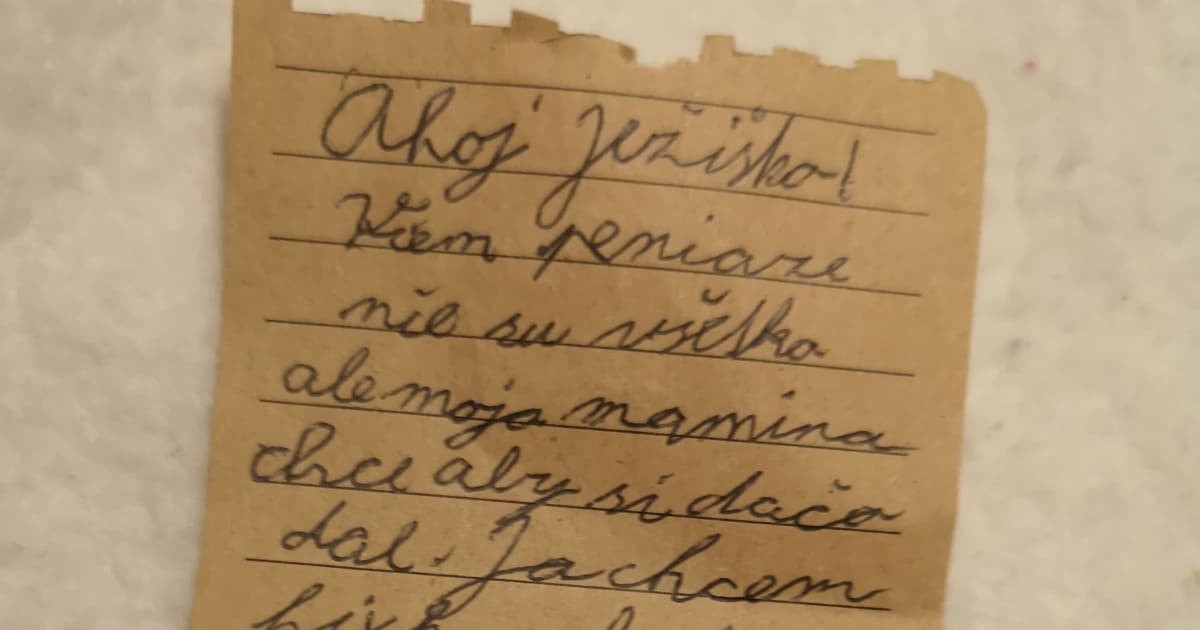 Ahoj Ježiško!
Viem peniaze
nie su všetko
ale moja mamina
chce aby si dačo
dal. Ja chcem